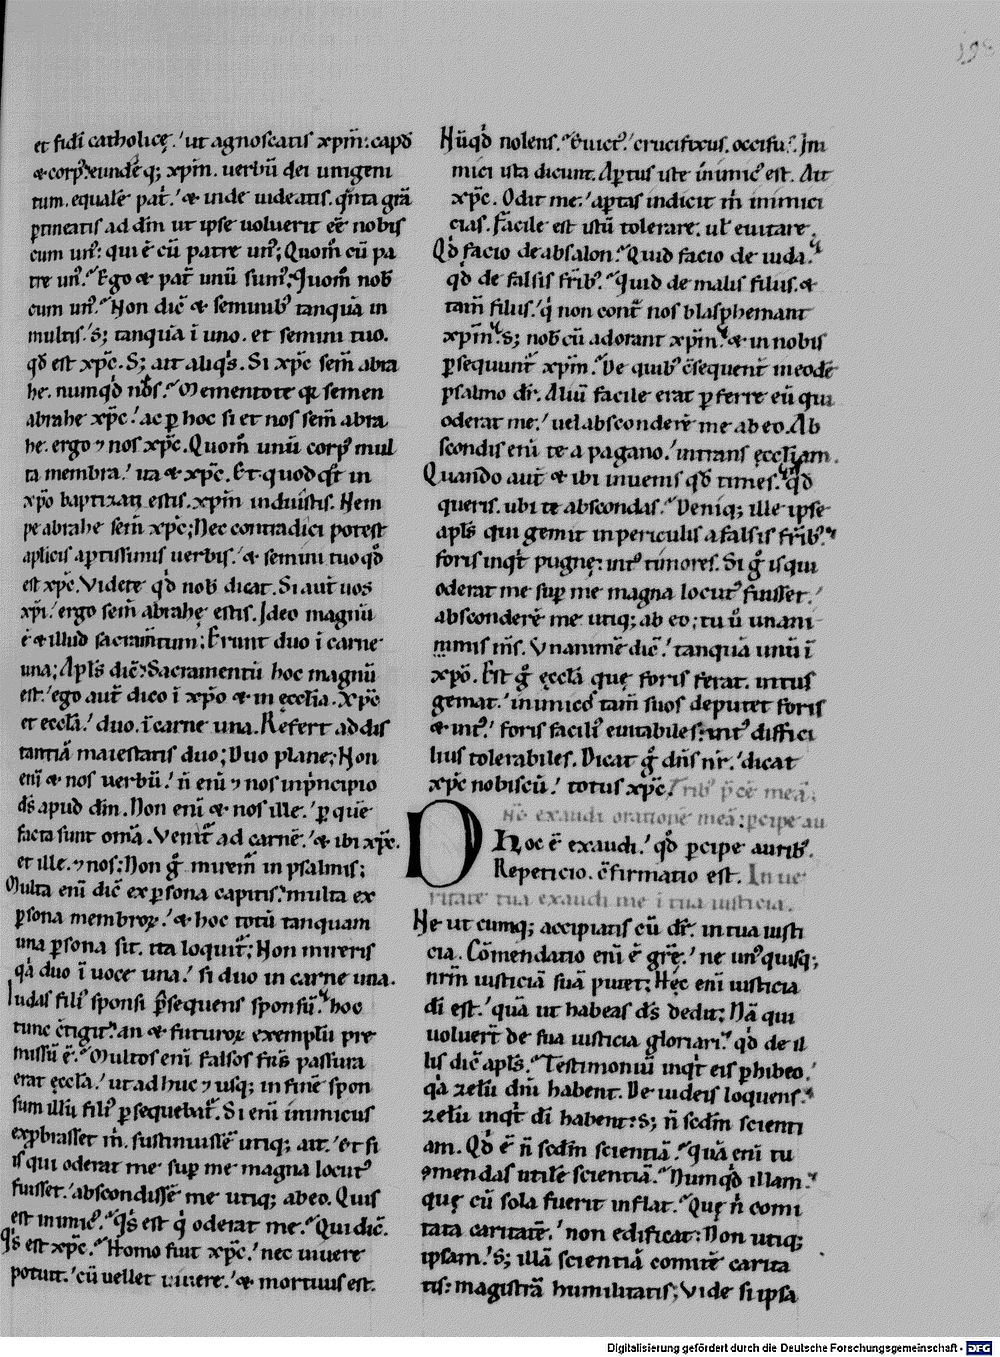 198
et fidei catholicę.' ut agnoscatis xp̄m: capđ
& corp᷒. eundēq; xp̄m. uerbū dei unigeni
tum. equalē pat̄.' & inde uideatis. q̄nta grā
p̱tineatis ad dm̄ ut ipse uoluerit eē nobis
cum un᷒: qui ē cū patre un᷒; Quom̄ cū pa
tre un᷒. Ego & pat̄ unū sum᷒; Quom̄ nob̄
cum un᷒. Non dic̄ & seminib᷒ tanquā in
multis.' S; tanquā ī uno. et semini tuo.
qđ est xp̄c. S; ait aliq's. Si xp̄c sem̄ abra
he. numqđ & nos. Mementote q semen
abrahe xp̄c.' ac p̱ hoc si et nos sem̄ abra
he. ergo ⁊ nos xp̄c. Quom̄ unū corp᷒ mul
ta membra.' ita & xp̄c. Et quodq̄t in
xp̄o baptizati estis. xp̄m induistis. Nem
pe abrahe sem̄ xp̄c; Nec contradici potest
aplicis ap̱tissimis uerbis.' & semini tuo qđ
est xp̄c. Videte qđ nob̄ dicat. Si aut̄ uos
xp̄i.' ergo sem̄ abrahę estis. Ideo magnū
ē & illud sacram̄tum; Erunt duo ī carne
una; Apl̄s dic̄: Sacramentū hoc magnū
est.' ego aut̄ dico ī xp̄o & in ęcclia. Xp̄c
et eccl̄a.' duo. ī carne una. Refert ad dis
tantiā maiestatis duo; Duo plane; Non
enī & nos uerbū.' n̄ enī ⁊ nos inp'ncipio
dš apud dm̄. Non enī & nos ille.' p̱ quē
facta sunt om̄a. Venit̄ ad carnē.' & ibi xp̄c.
et ille. ⁊ nos: Non g' mirem̄ in psalmis;
Multa enī dic̄ ex p̱sona capitis.' multa ex
p̱sona membroꝝ.' & hoc totū tanquam
una p̱sona sit. ita loquit̄; Non mireris
qa duo ī uoce una.' si duo in carne una.
Iudas fili᷒ sponsi p̱sequens sponsū. hoc
tunc c̄tigit.' an & futuroꝝ exemplū pre
missū ē. Multos enī falsos frš passura
erat ęccl̄a.' ut adhuc ⁊ usq; in finē spon
sum illū fili᷒ p̱sequebat̄. Si enī inimicus
exp̱brasset m̄. sustinuissē utiq; ait.' et si
is qui oderat me sup̱ me magna locut᷒
fuisset.' abscondissē me utiq; abeo. Quis
est inimic᷒. Q's est q' oderat me. Qui dic̄.
Q's est xp̄c. Homo fuit xp̄c.' nec uiuere
potuit.' cū uellet uiuere.' & mortuus est.
Nūqđ nolens. Euict᷒.' crucifixus. occisu᷒. Ini
mici ista dicunt. Ap̱tus iste inimic᷒ est. Ait
xp̄c. Odit me.' ap̱tas indicit m̄ inimici
cias. Facile est istū tolerare. ul' euitare.
Qđ facio de absalon. Quid facio de iuda.
qđ de falsis fr̄ib᷒. Quid de malis filiis. &
tam̄ filiis.' q' non cont̄ nos blasphemant
xp̄m. S; nob̄cū adorant xp̄m. & in nobis
p̱sequunt̄ xp̄m. De quib᷒ c̄sequent̄ in eodē
psalmo dr̄. Aliū facile erat p̱ferre eū qui
oderat me.' uel absconderē me ab eo. Ab
scondis enī te a pagano.' intrans ęccliam.
Quando aut̄ & ibi inuenis qđ times. qđ
queris. ubi te abscondas. Deniq; ille ipse
apl̄s qui gemit in periculis a falsis fr̄ib᷒.
foris inq̄t pugnę: int᷒ timores. Si g' is qui
oderat me sup̱ me magna locut᷒ fuisset.'
absconderē me utiq; ab eo; tu u̇ unani
mimis m̄s. Vnanimē dic̄.' tanquā unū ī
xp̄o. Est g' ęccl̄a quę foris ferat. intus
gemat.' inimicos tam̄ suos deputet foris
& int᷒.' foris facili᷒ euitabiles: int᷒ diffici
lius tolerabiles. Dicat g' dn̄s nr̄.' dicat
xp̄c nobiscū.' totus xp̄c. Trib᷒ p̄cē meā;
Dn̄e exaudi orationē meā; p̱cipe au
Hoc ē exaudi.' qđ p̱cipe aurib᷒.
Repeticio. c̄firmatio est. In ue
ritate tua exaudi me ī tua iusticia.
Ne ut cumq; accipiatis cū dr̄. in tua iusti
cia. Cōmendatio enī ē grę̄.' ne un᷒quisq;
nr̄m iusticiā suā putet; Hęc enī iusticia
di est.' quā ut habeas dš dedit; Nā qui
uoluer̄t de sua iusticia gloriari.' qđ de il
lis dic̄ apl̄s. Testimoniū inq̄t eis p̱hibeo.'
qa zelū di habent. De iudeis loquens.
zelū inq̄t di habent: S; n̄ scdm̄ scienti
am. Qđ ē n̄ scdm̄ scientiā. Quā enī tu
ꝯmendas utilē scientiā. Numqđ illam.
quę cū sola fuerit inflat. Quę n̄ comi
tata caritatē.' non edificat: Non utiq;
ipsam.' S; illā scientiā comitē carita
tis: magistrā humilitatis; Vide si ipsa
Digitalisierung gefördert durch die Deutsche Forschungsgemeinschaft - DFG